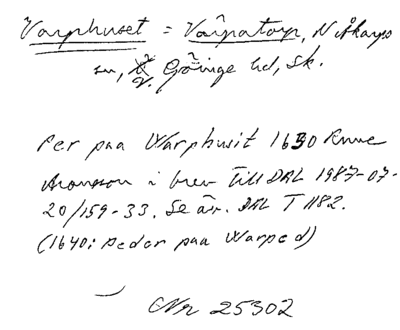 Varphuset = Värpatorp, N Åkarps
sn, V. Göinge hd, Sk.
Per paa Warphusit 1630 Rune
Aronsson i brev till DAL 1987-07-
20/159-33. Se äv. DAL T 1182.
(1640: Peder paa Warped)
Nr 25302